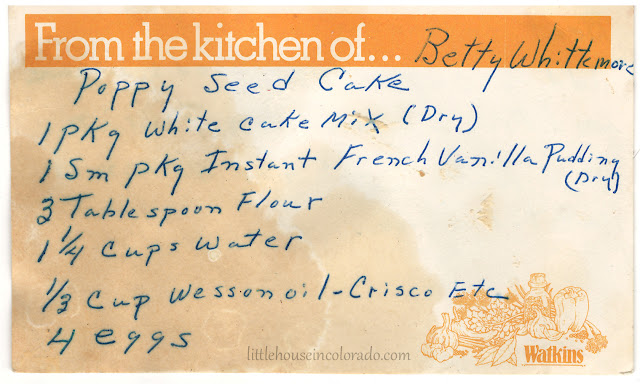 From the kitchen of... Betty Whittemore
Poppy Seed Cake
1 pkg White Cake Mix (Dry)
1 Sm pkg Instant French Vanilla Pudding
(Dry)
3 Tablespoon Flour
1 1/4 Cups Water
1/3 Cup Wesson oil - Crisco Etc
4 eggs
littlehouseincolorado.com
Watkins